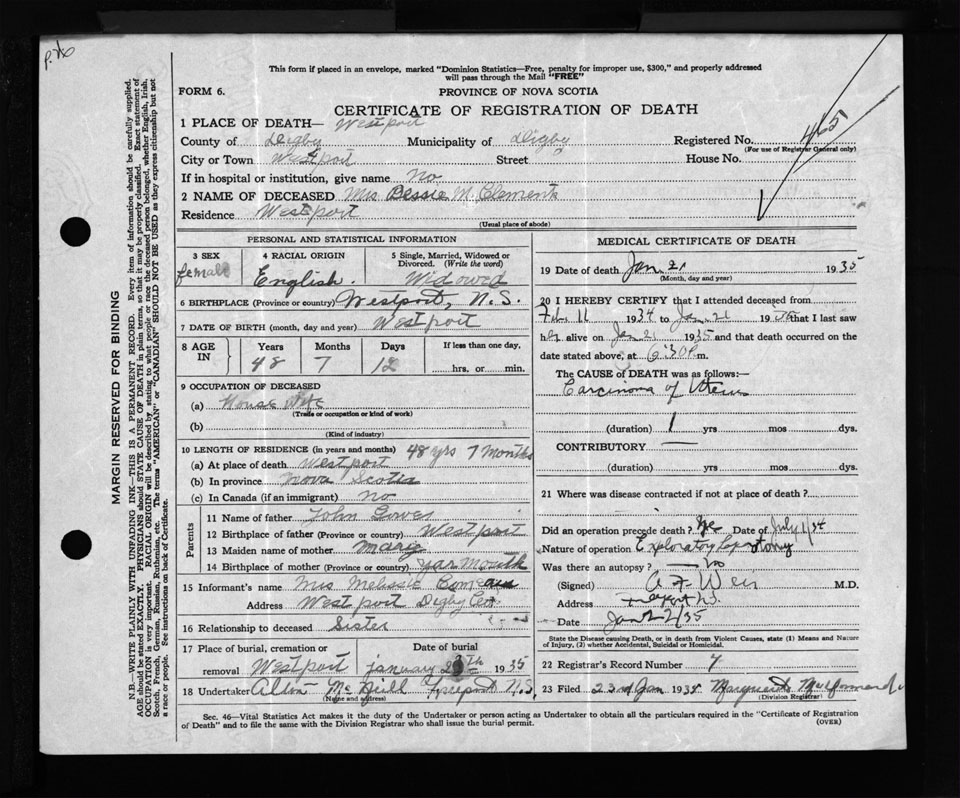 P. 26
This form if placed in an envelope, marked "Dominion Statistics—Free, penalty for improper use, $300," and properly addressed
will pass through the Mail "FREE"
FORM 6. PROVINCE OF NOVA SCOTIA
CERTIFICATE OF REGISTRATION OF DEATH
1 PLACE OF DEATH— Westport
County of Digby Municipality of Digby Registered No. 465
(For use of Registrar General only)
City or Town Westport Street House No.
If in hospital or institution, give name No
2 NAME OF DECEASED Mrs Bessie M. Clements
Residence Westport
(Usual place of abode)
PERSONAL AND STATISTICAL INFORMATION
3 SEX 4 RACIAL ORIGIN 5 Single, Married, Widowed or
Divorced. (Write the word)
female English. Widowed
6 BIRTHPLACE (Province or country) Westport, N.S.
7 DATE OF BIRTH (month, day and year) Westport
8 AGE IN Years Months Days If less than one day,
48 7 12 hrs. or min.
9 OCCUPATION OF DECEASED
(a) House wife
(Trade or occupation or kind of work)
(b)
(Kind of industry)
10 LENGTH OF RESIDENCE (in years and months) 48 yrs 7 Months
(a) At place of death Westport
(b) In province Nova Scotia
(c) In Canada (if an immigrant) no
Parents
11 Name of father John
12 Birthplace of father (Province or country) Westport
13 Maiden name of mother Mary
14 Birthplace of mother (Province or country) yarmouth
15 Informant's name Mrs Melissie Comeau
Address Westport Digby Co
16 Relationship to deceased Sister
17 Place of burial, cremation or Date of burial
removal Westport january th 1935
18 Undertaker McNeill Freeport N.S,
(Name and address)
MEDICAL CERTIFICATE OF DEATH
19 Date of death Jan 21 1935
(Month, day and year)
20 I HEREBY CERTIFY that I attended deceased from
Feb 11 1934 to Jan 21 19 that I last saw
her alive on Jan 21 1935 and that death occurred on the
date stated above, at 6:30 P.m.
The CAUSE OF DEATH was as follows:—
Carcinoma of Uterus
(duration) 1 yrs mos dys.
CONTRIBUTORY —
(duration) yrs mos dys.
21 Where was disease contracted if not at place of death?
Did an operation precede death? Yes Date of July 1/34
Nature of operation Exploratory
Was there an autopsy? No
(Signed) A F Weir M.D.
Address Freeport N.S.
Date Jan 22/35
State the Disease causing Death, or in death from Violent Causes, state (1) Means and Nature
of Injury, (2) whether Accidental, Suicidal or Homicidal.
22 Registrar's Record Number 7
23 Filed 23rd Jan 193 Marguerite
(Division Registrar)
Sec. 46—Vital Statistics Act makes it the duty of the Undertaker or person acting as Undertaker to obtain all the particulars required in the "Certificate of Registration
of Death" and to file the same with the Division Registrar who shall issue the burial permit. (OVER)
MARGIN RESERVED FOR BINDING
N.B.—WRITE PLAINLY WITH UNFADING INK—THIS IS A PERMANENT RECORD. Every item of information should be carefully supplied.
AGE should be stated EXACTLY. PHYSICIANS should STATE CAUSE OF DEATH in plain terms, so that it may be properly classified. Exact statement of
OCCUPATION is very important. RACIAL ORIGIN will be described by stating to what people or race the deceased person belonged, whether English, Irish,
Scotch, French, German, Russian, Ruthenian, etc. The terms "AMERICAN" or "CANADIAN" SHOULD NOT BE USED as they express citizenship but not
a race or people. See instructions on back of Certificate.